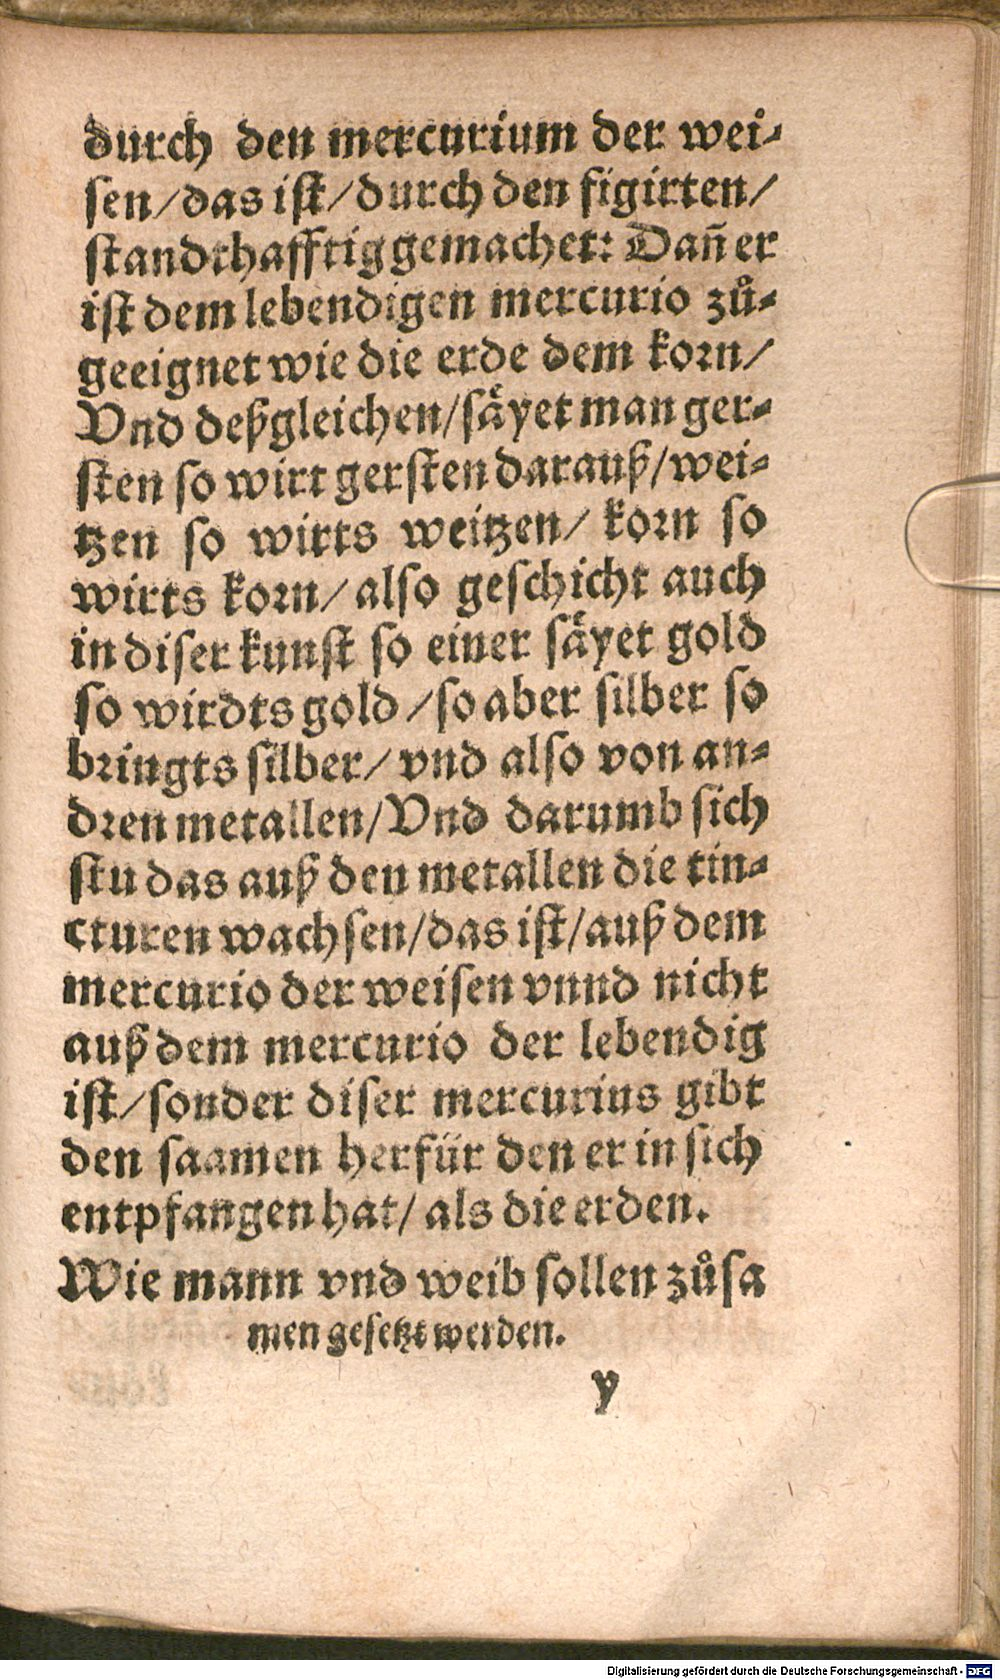 durch den mercurium der wei⸗
sen/das ist/durch den figirten/
standthafftig gemachet: Dañ er
ist dem lebendigen mercurio zů⸗
geeignet wie die erde dem korn/
Vnd deßgleichen/säyet man ger⸗
sten so wirt gersten darauß/wei⸗
tzen so wirts weitzen/ korn so
wirts korn/ also geschicht auch
in diser kunst so einer säyet gold
so wirdts gold /so aber silber so
bringts silber/ vnd also von an⸗
dren metallen/Vnd darumb sich
stu das auß den metallen die tin⸗
cturen wachsen/das ist/auß dem
mercurio der weisen vnnd nicht
auß dem mercurio der lebendig
ist/sonder diser mercurius gibt
den saamen herfür den er in sich
entpfangen hat/ als die erden.
Wie mann vnd weib sollen zůsa
men gesetzt werden.
y
Digitalisierung gefördert durch die Deutsche Forschungsgemeinschaft - DFG